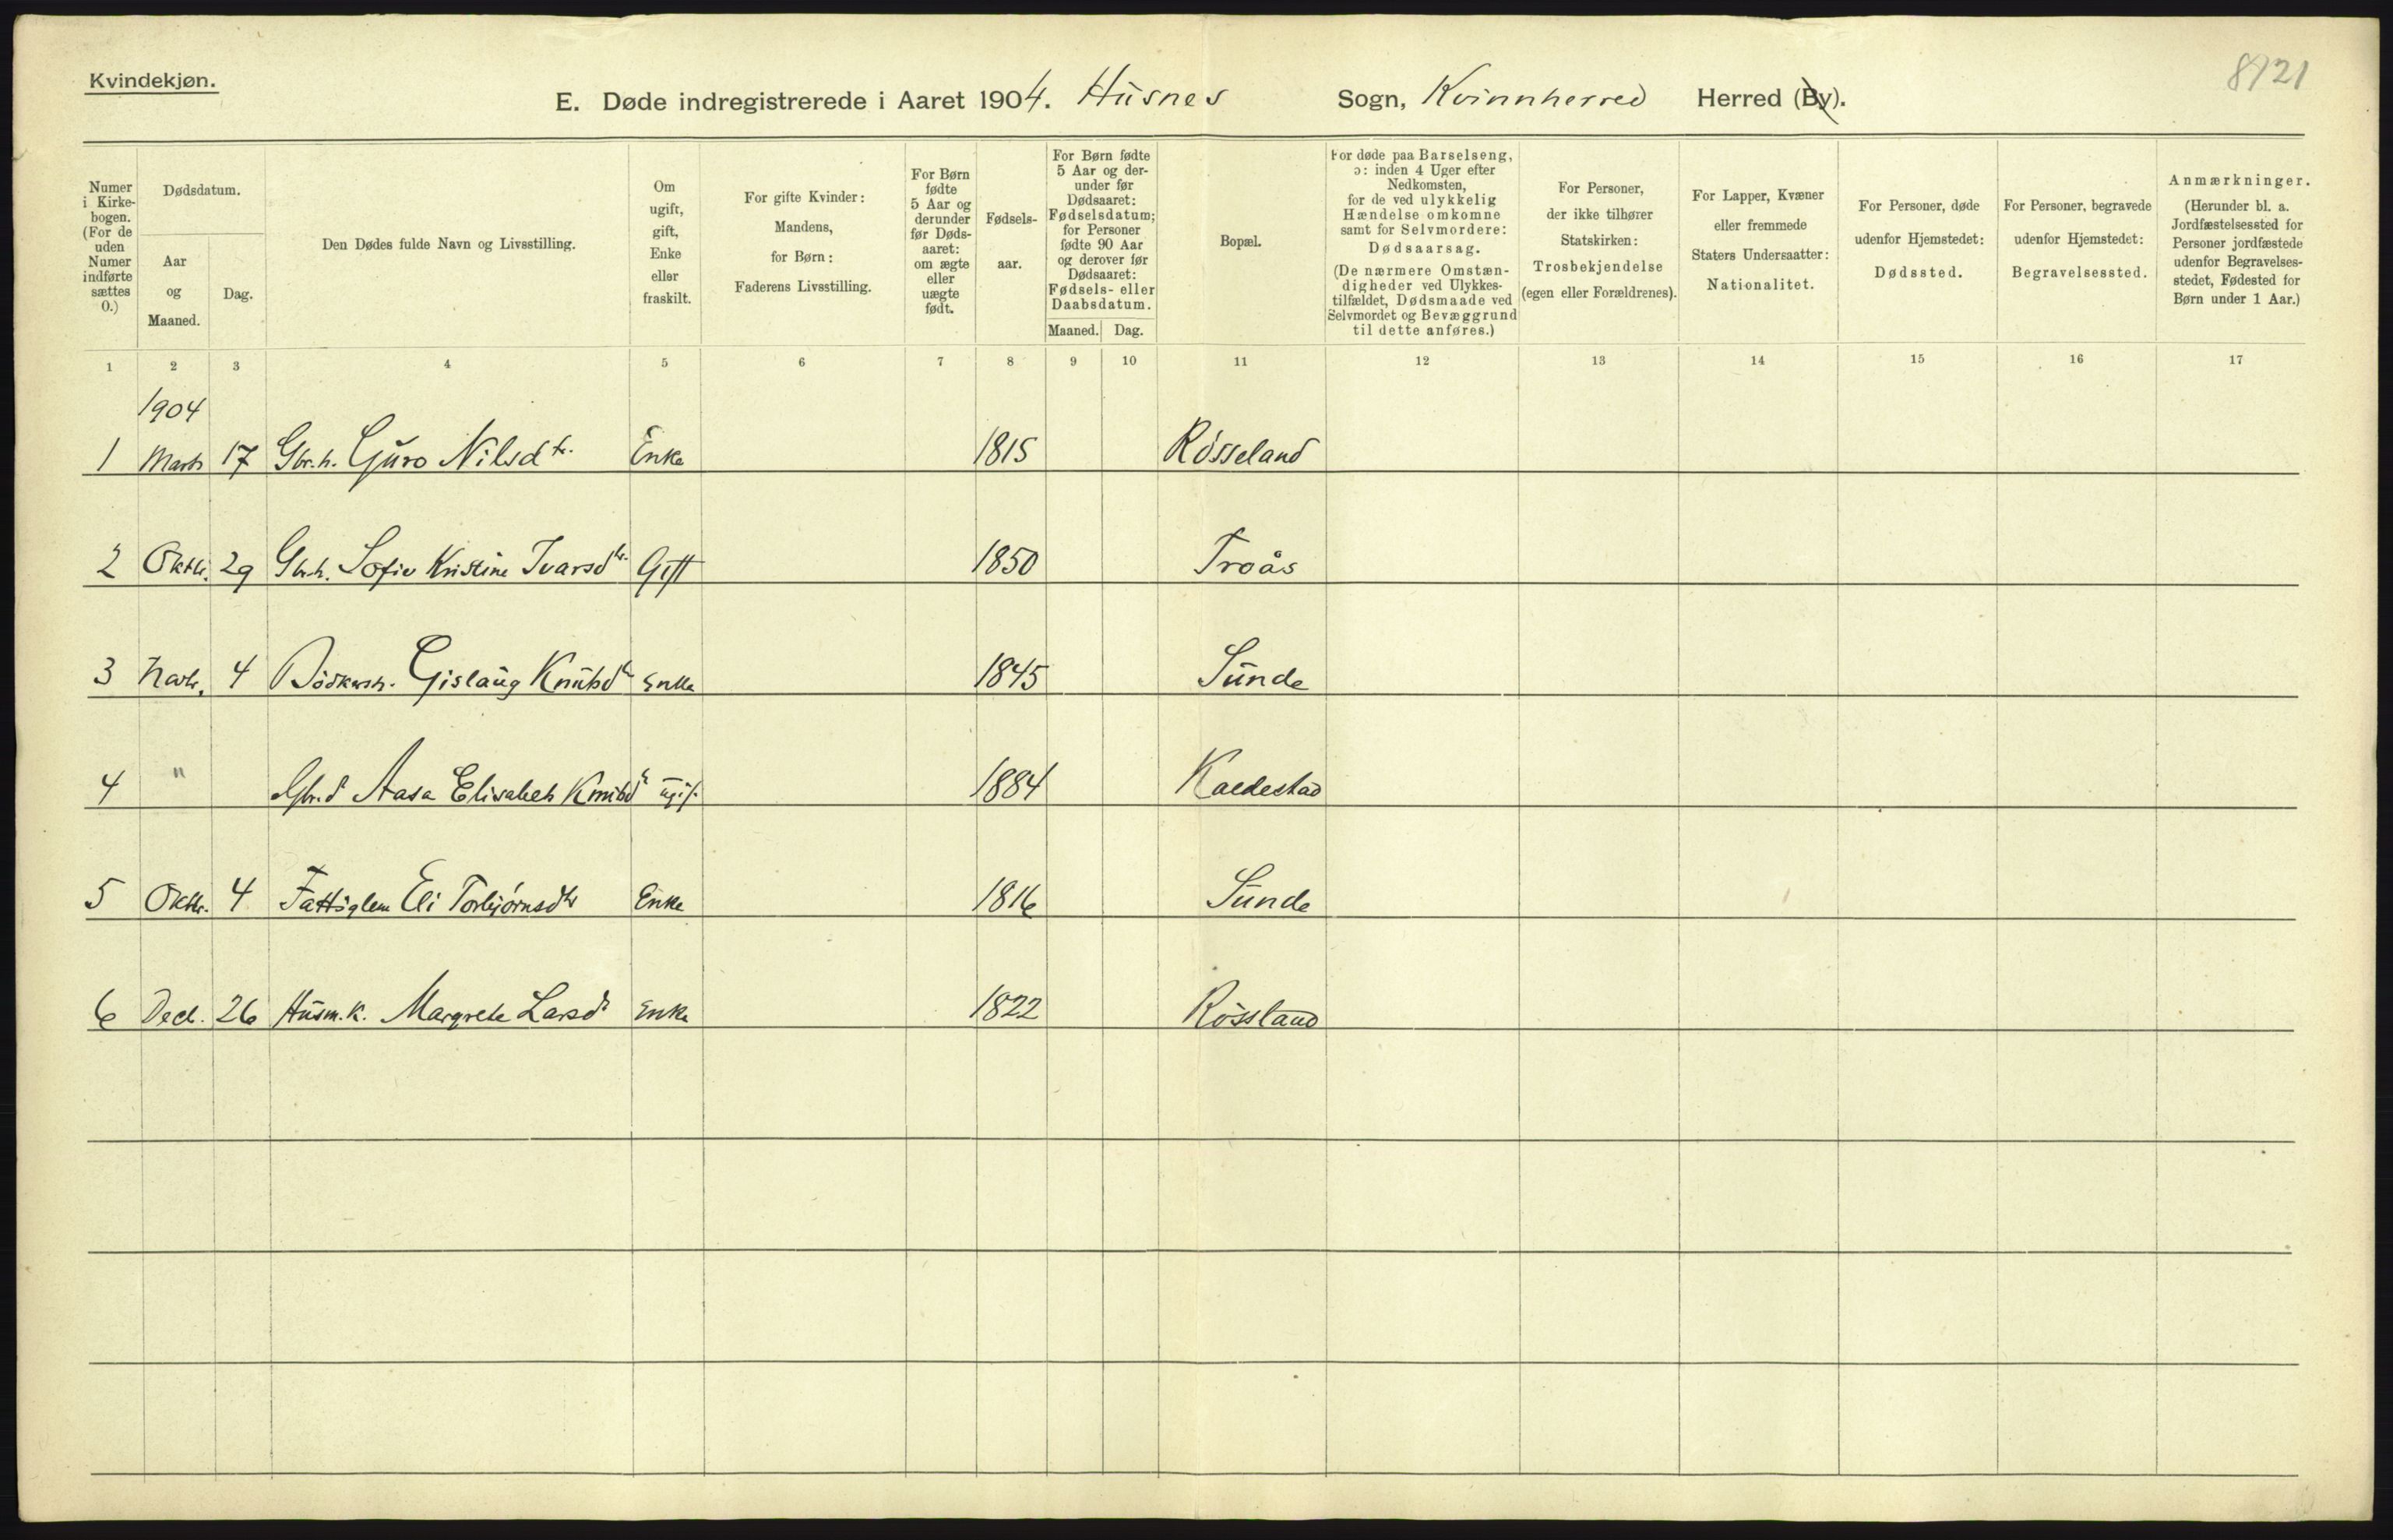 Kvindekjøn.
8121
E. Døde indregistrerede i Aaret 1904. Husnes Sogn, Kvinnherred Herred (By).
Numer i Kirkebogen. (For de uden Numer indførte sættes 0.)
Dødsdatum.
Aar og Maaned.
Dag.
Den Dødes fulde Navn og Livsstilling.
Om ugift, gift, Enke eller fraskilt.
For gifte Kvinder: Mandens, for Børn: Faderens Livsstilling.
For Børn fødte 5 Aar og derunder før Døds-aaret: om ægte eller uægte født.
Fødsels-aar.
For Børn fødte 5 Aar og der-under før Dødsaaret: Fødselsdatum; for Personer fødte 90 Aar og derover før Dødsaaret: Fødsels- eller Daabsdatum.
Maaned. Dag.
Bopæl.
For døde paa Barselseng, ɔ: inden 4 Uger efter Nedkomsten, for de ved ulykkelig Hændelse omkomne samt for Selvmordere: Dødsaarsag. (De nærmere Omstæn-digheder ved Ulykkes-tilfældet, Dødsmaade ved Selvmordet og Bevæggrund til dette anføres.)
For Personer, der ikke tilhører Statskirken: Trosbekjendelse (egen eller Forældrenes).
For Lapper, Kvæner eller fremmede Staters Undersaatter: Nationalitet.
For Personer, døde udenfor Hjemstedet: Dødssted.
For Personer, begravede udenfor Hjemstedet: Begravelsessted.
Anmærkninger. (Herunder bl. a. Jordfæstelsessted for Personer jordfæstede udenfor Begravelses-stedet, Fødested for Børn under 1 Aar.)
1 2 3 4 5 6 7 8 9 10 11 12 13 14 15 16 17
1904
1 Marts 17 Gbr.h. Guro Nilsdtr. Enke 1815 Rösseland
2 Oktbr. 29 Gbr.h. Sofie Kristine Ivarsdtr. Gift 1850 Troås
3 Novbr. 4 Bödkersh. Gislaug Knutsdtr Enke 1845 Sunde
4 " Gbr.d Aasa Elisabeth Knutsdtr ugif. 1884 Kaldestad
5 Oktbr. 4 Fattiglem Eli Torbjörnsdtr Enke 1816 Sunde
6 Decb. 26 Husm.k. Margrete Larsdtr Enke 1822 Rössland